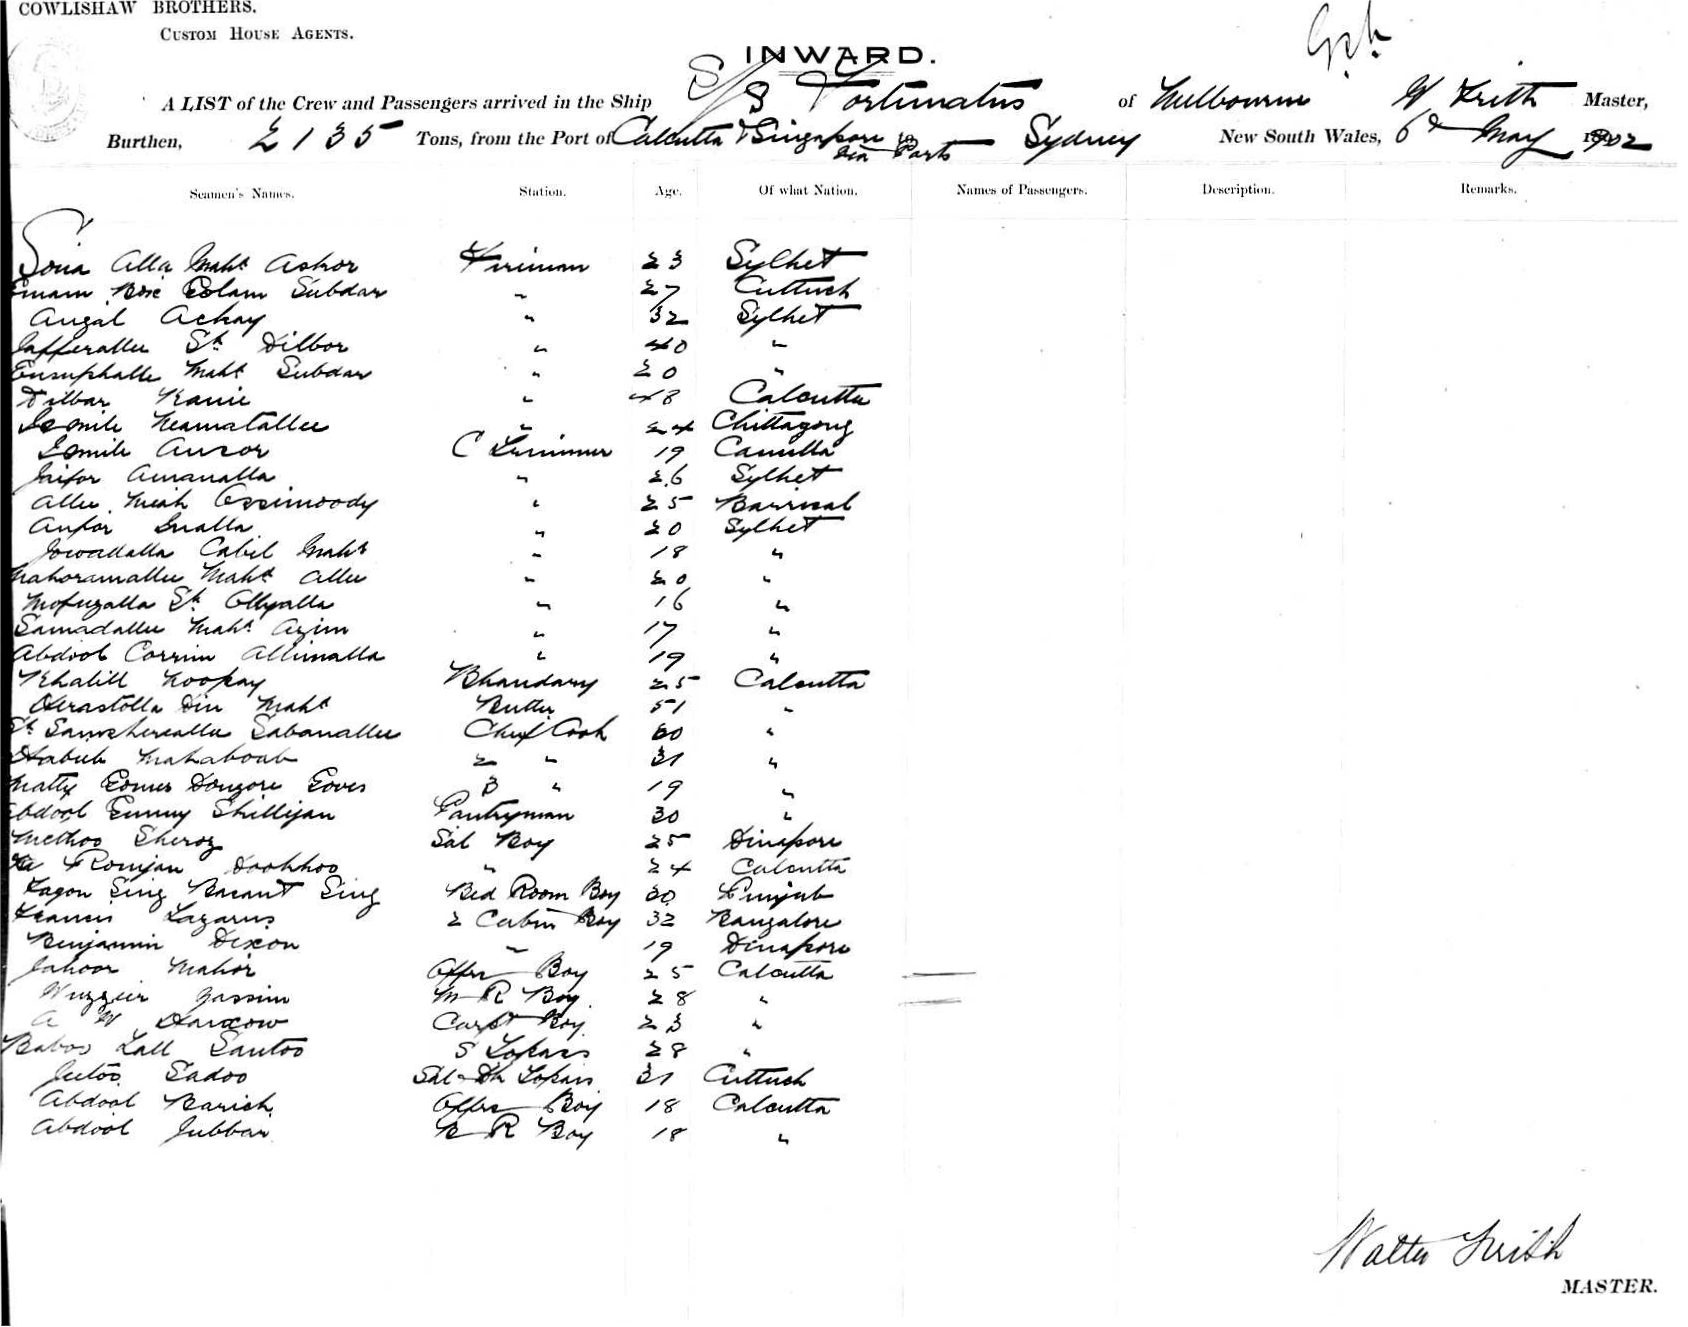 COWLISHAW BROTHERS.
CUSTOM HOUSE AGENTS.
INWARD.
A LIST of the Crew and Passengers arrived in the Ship S/S Fortunatus of Melbourne W Frith Master,
Burthen, 2135 Tons, from the Port of Calcutta & Singapore via Ports Sydney New South Wales, 6th May 1902
Seamen's Names. Station. Age. Of what Nation. Names of Passengers. Description. Remarks.
Sona Alla Maht Askor Fireman 23 Sylhet
Emam Box Golam Subdar " 27 Cuttuck
Angal Ackay " 32 Sylhet
Jafferallee Sk Dilbor " 40 "
Eusuphalle Maht Subdar " 20 "
Dilbar Kanie " 48 Calcutta
Ismile Neamatallee " 24 Chittagong
Esmile Ansor C Trimmer 19 Camilla
Jaifor Amanalla " 26 Sylhet
Allee Meah Assimoody " 25 Barrisal
Anfor Sualla " 20 Sylhet
Jowadalla Cabil Maht " 18 "
Mahoramallee Maht Allee " 20 "
Mofuzalla Sk Ollyalla " 16 "
Samadallee Maht Azim " 17 "
Abdool Corrim Allimalla " 19 "
Khalill Noopay Bhandary 25 Calcutta
Herastolla Din Maht Butler 51 "
Sk Samshereallee Sabanallee Chief Cook 60 "
Habieb Mahaboub 2 " 31 "
Matty Gomes Dongore Goves 3 " 19 "
Abdool Gunny Shillijan Pantryman 30 "
Methoo Sheroz Sal Boy 25 Dinapore
Romjan Dookhoo " 24 Calcutta
Fagon Sing Basant Sing Bed Room Boy 30 Punjab
Francis Lazarus 2 Cabin Boy 32 Bangalore
Benjamin Dixon " 19 Dinapore
Jahoor Mahor Offrs Boy 25 Calcutta
Wuzzeir Jassim M R Boy 28 "
A W Harxow Carpt Boy 23 "
Baboo Lall Santoo S Topass 28 "
Jeetoo Sadoo Sal Dk Topass 31 Cuttuck
Abdool Barick Offrs Boy 18 Calcutta
Abdool Jubbar B R Boy 18 "
Walter Frith
MASTER.